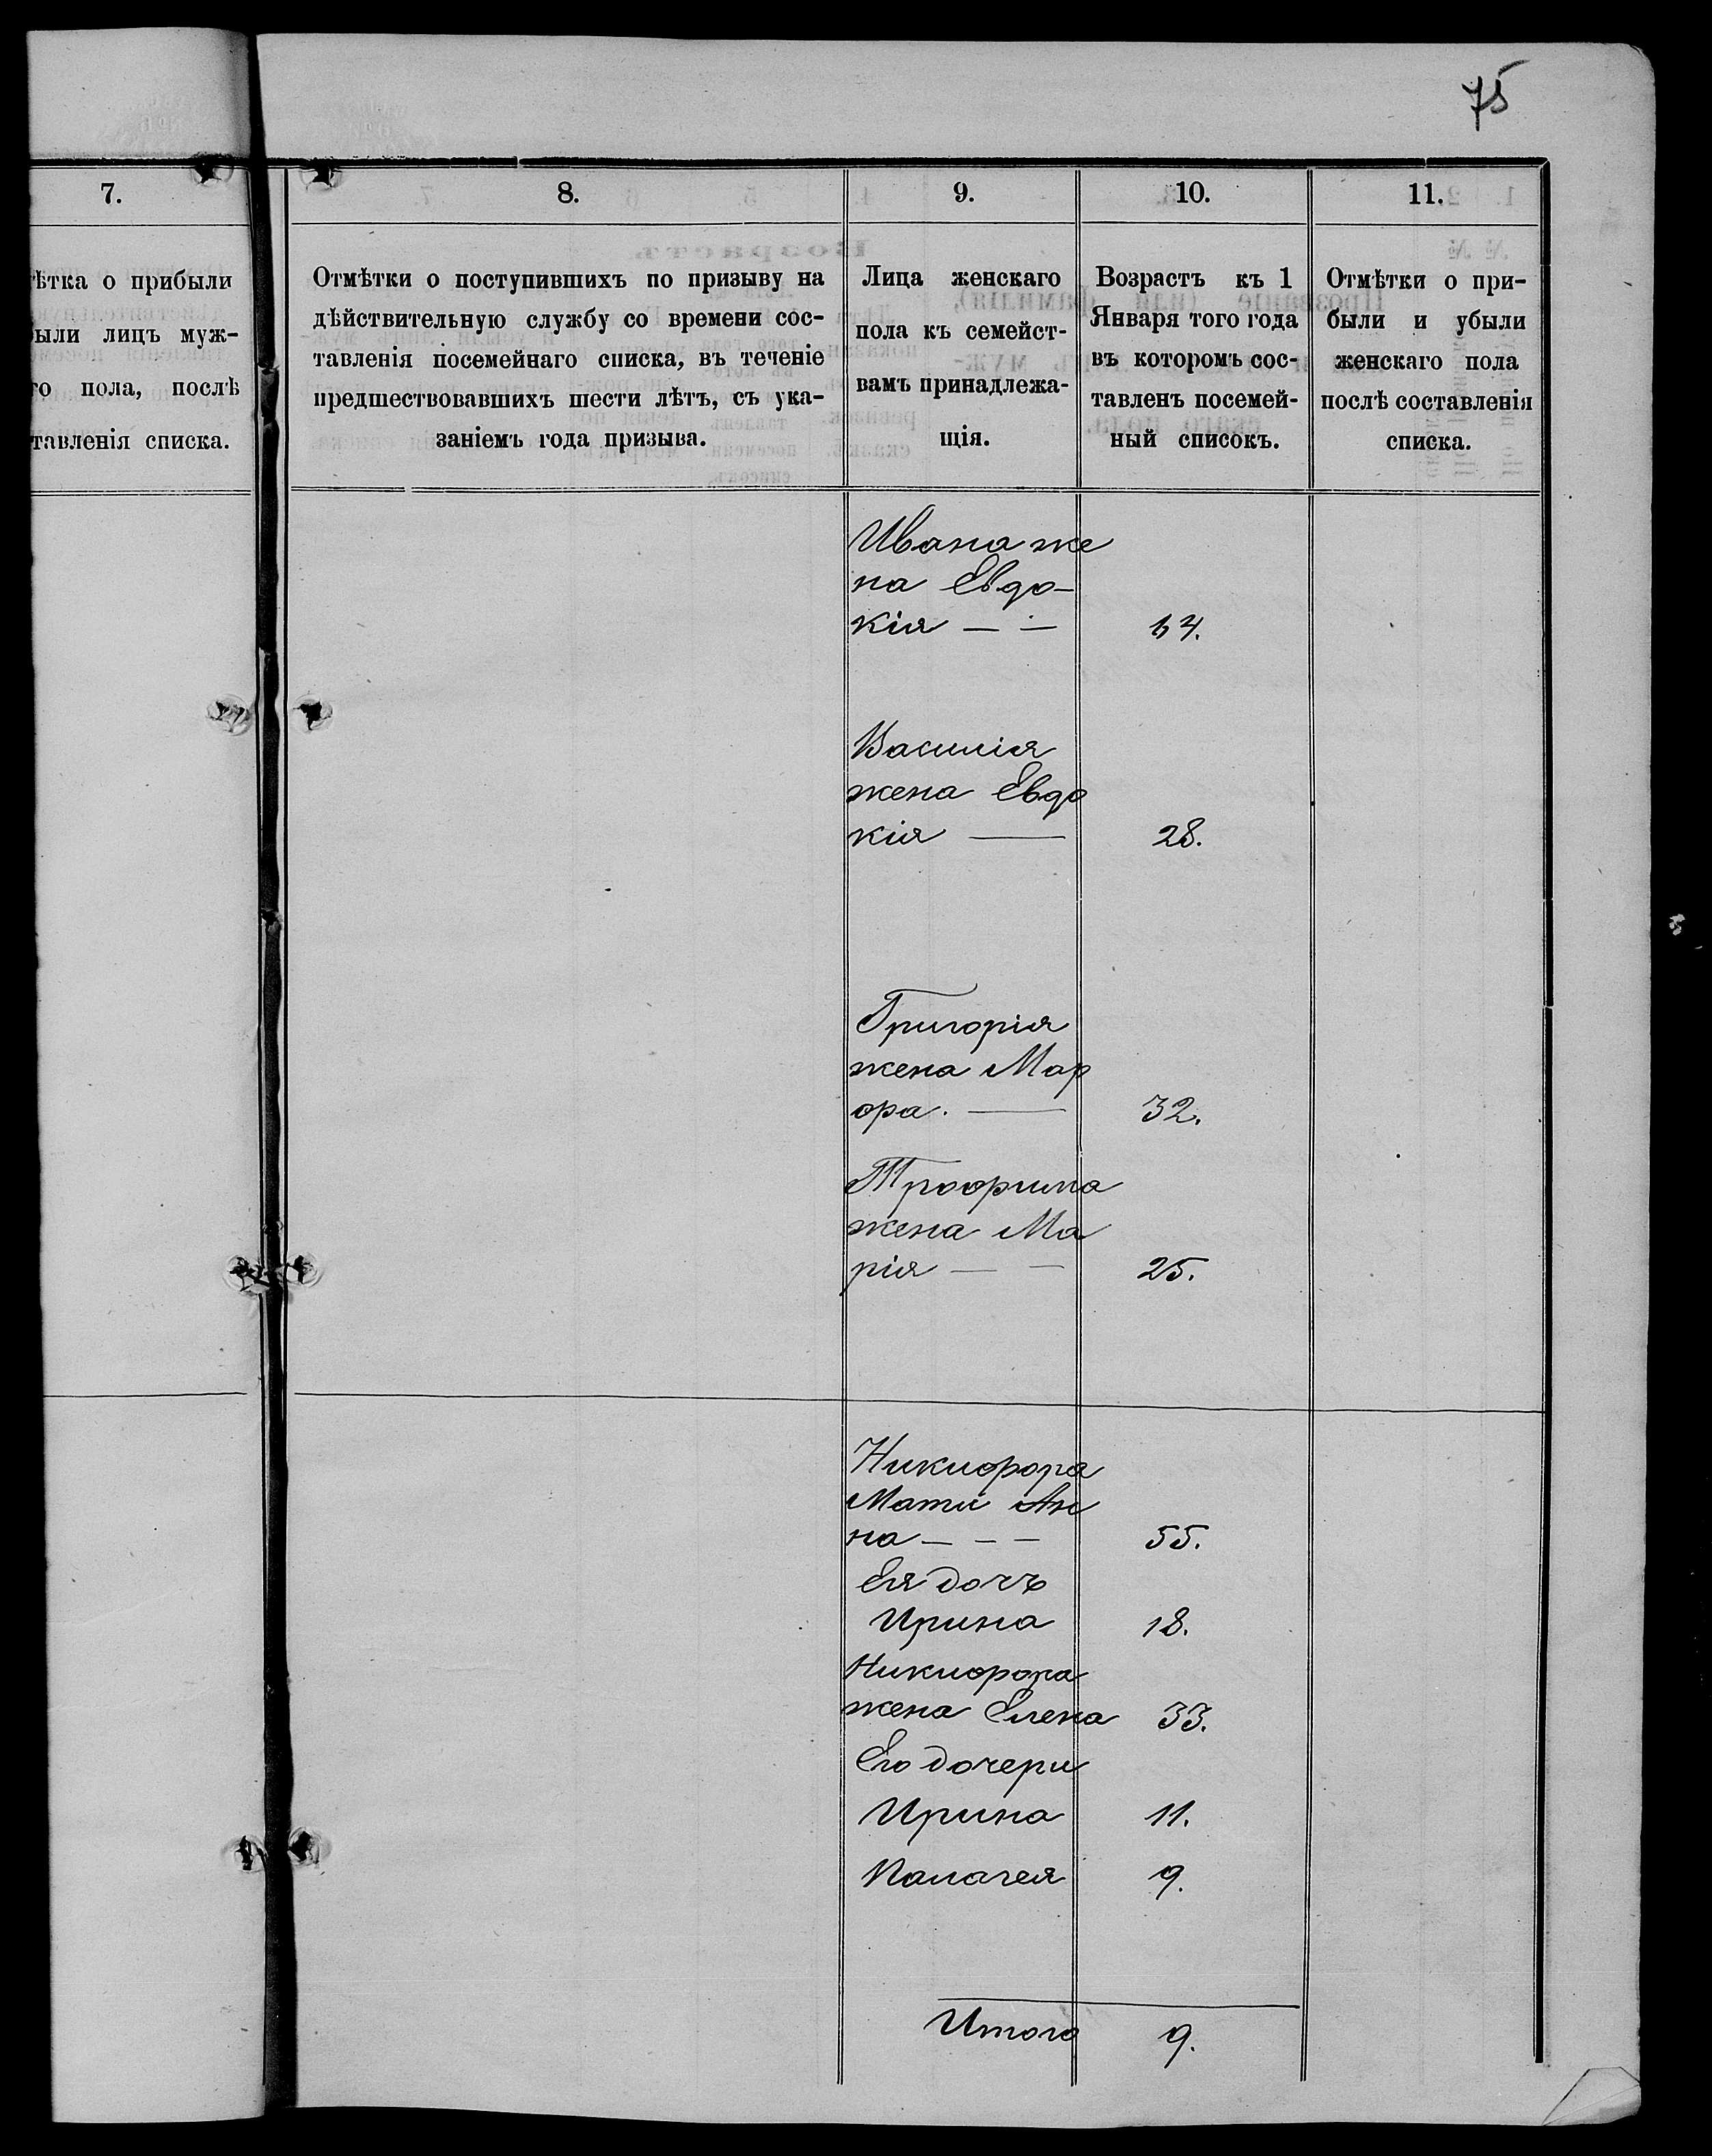 75
7.
8.
9.
10.
11.
ѣтка о прибыли
были лицъ муж-
го пола, послѣ
тавленія списка.
Отмѣтки о поступившихъ по призыву на
дѣйствительную службу со времени сос-
тавленія посемейнаго списка, въ теченіе
предшествовавшихъ шести лѣтъ, съ ука-
заніемъ года призыва.
Лица женскаго
пола къ семейст-
вамъ принадлежа-
щія.
Возрастъ къ 1
Января того года
въ которомъ сос-
тавленъ посемей-
ный списокъ.
Отмѣтки о при-
были и убыли
женскаго пола
послѣ составленія
списка.
Ивана же
на Евдо-
кія — — 64.
Василія
жена Евдо
кія — 28.
Григорія
жена Мар
ѳра. — 32.
Трофима
жена Ма
рія — — 25.
Никифора
Мати Ан
на — — — 55.
Ея дочь
Ирина 18.
Никифора
жена Елена 33.
Его дочери
Ирина 11.
Палагея 9.
Итого 9.